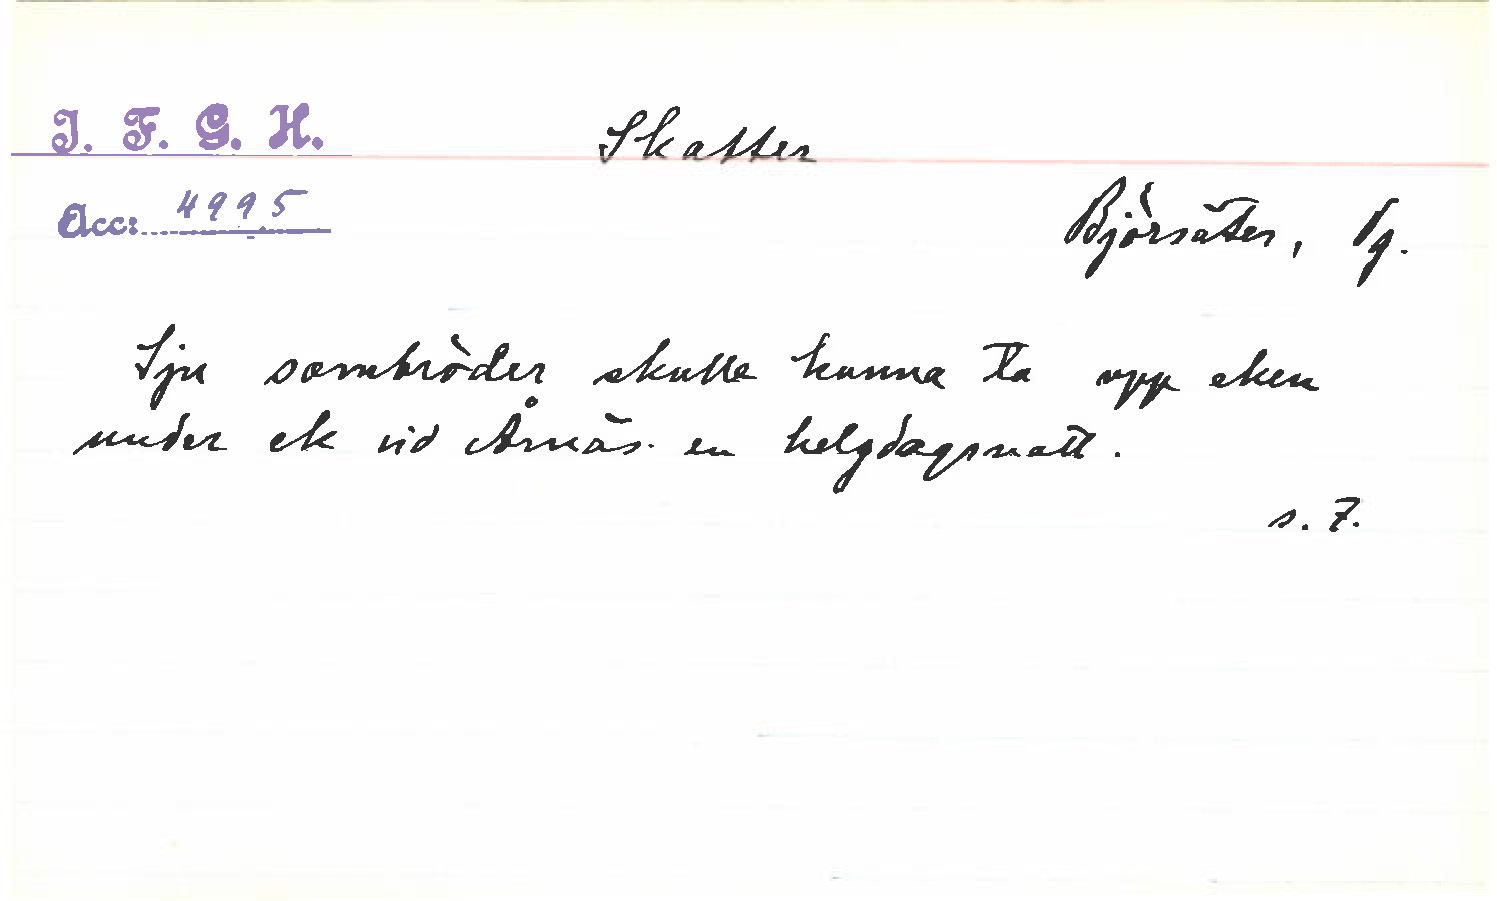 I. F. G. H.
Skatter
Acc: 4995
Björsäter, Vg.
Sju sambröder skulle kunna ta upp eken
under ek vid Årnäs. en helgdagsnatt.
s. 7.